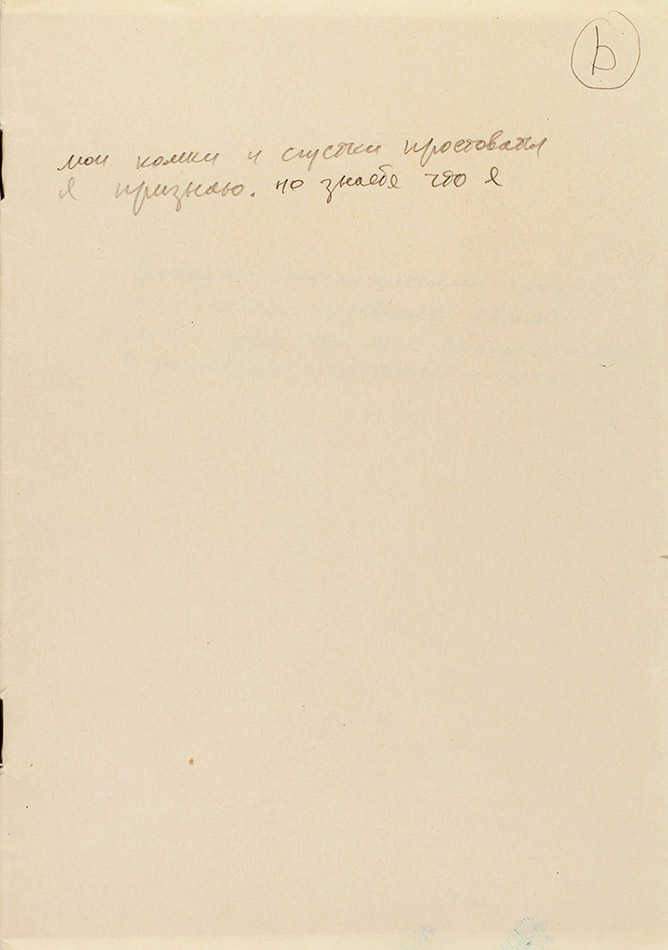 b
мои комки и сгустки простоваты
я признаю. но знаете что я